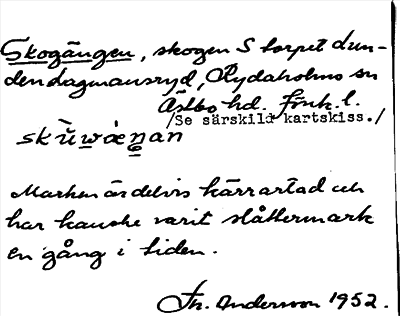 Skogängen, skogen S torpet Lun-
den Lagmansryd, Rydaholms sn
Östbo hd. Jönk. l.
/Se särskild kartskiss./
Marken är delvis kärrartad och
har kanske varit slåttermark
en gång i tiden.
Th. Andersson 1952.